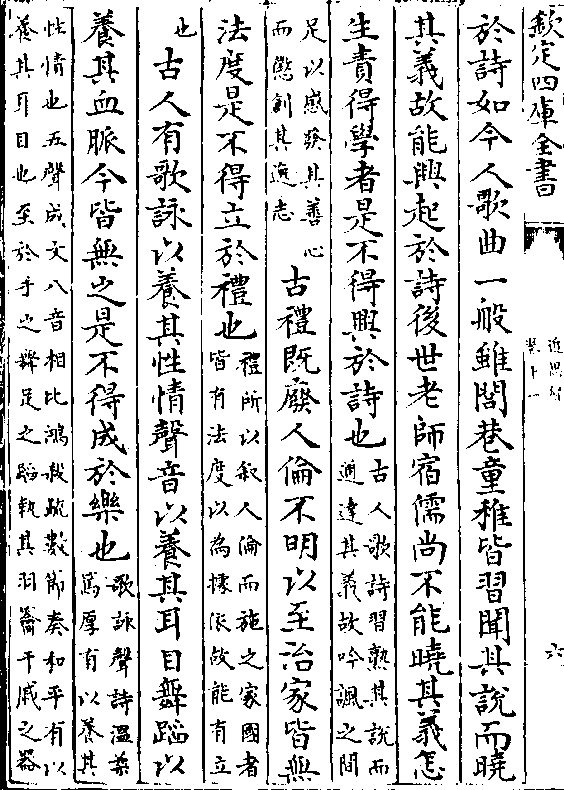 欽定四庫全書
近思錄
卷十一
六
於詩如今人歌曲一般雖閭巷童稚皆習聞其說而曉
其義故能興起於詩後世老師宿儒尚不能曉其義怎
生責得學者是不得興於詩也
古人歌詩習熟其說而
通達其義故吟諷之間
足以感發其善心
而懲創其逸志
古禮既廢人倫不明以至治家皆無
法度是不得立於禮也
禮所以叙人倫而施之家國者
皆有法度以為據依故能有立
也
古人有歌詠以養其性情聲音以養其耳目舞蹈以
養其血脈今皆無之是不得成於樂也
歌詠聲詩温柔
篤厚有以養其
性情也五聲成文八音相比鴻殺疏數節奏和平有以
養其耳目也至於手之舞足之蹈執其羽籥干戚之器